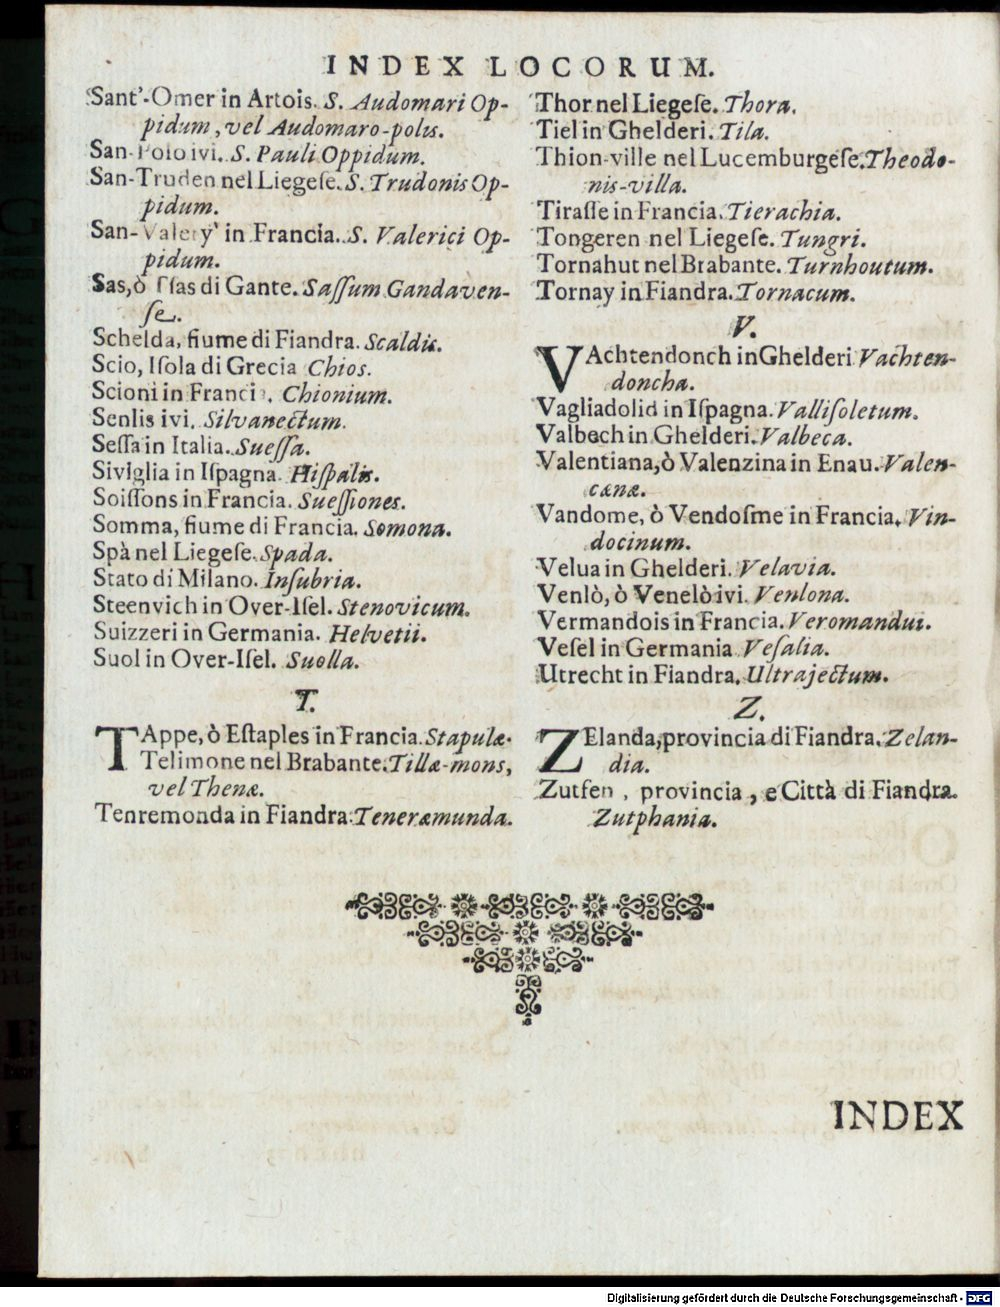 INDEX LOCORUM.
Sant'-Omer in Artois. S. Audomari Op-
pidum, vel Audomaro-polis.
San-Polo ivi. S. Pauli Oppidum.
San-Truden nel Liegeſe. S. Trudonis Op-
pidum.
San-Valery' in Francia. S. Valerici Op-
pidum.
Sas, ò Sſas di Gante. Saſſum Gandaven-
ſe.
Schelda, fiume di Fiandra. Scaldis.
Scio, Iſola di Grecia Chios.
Scioni in Francia. Chionium.
Senlis ivi. Silvanectum.
Seſſa in Italia. Sueſſa.
Siviglia in Iſpagna. Hiſpalis.
Soiſſons in Francia. Sueſſiones.
Somma, fiume di Francia. Somona.
Spà nel Liegeſe. Spada.
Stato di Milano. Inſubria.
Steenvich in Over-Iſel. Stenovicum.
Suizzeri in Germania. Helvetii.
Suol in Over-Iſel. Suolla.
T.
TAppe, ò Eſtaples in Francia. Stapulæ.
Telimone nel Brabante. Tillæ-mons,
vel Thenæ.
Tenremonda in Fiandra. Teneræmunda.
Thor nel Liegeſe. Thora.
Tiel in Ghelderi. Tila.
Thion-ville nel Lucemburgeſe. Theodo-
nis-villa.
Tiraſſe in Francia. Tierachia.
Tongeren nel Liegeſe. Tungri.
Tornahut nel Brabante. Turnhoutum.
Tornay in Fiandra. Tornacum.
V.
VAchtendonch in Ghelderi Vachten-
doncha.
Vagliadolid in Iſpagna. Valliſoletum.
Valbech in Ghelderi. Valbeca.
Valentiana, ò Valenzina in Enau. Valen-
cænæ.
Vandome, ò Vendoſme in Francia. Vin-
docinum.
Velua in Ghelderi. Velavia.
Venlò, ò Venelò ivi. Venlona.
Vermandois in Francia. Veromandui.
Veſel in Germania Veſalia.
Utrecht in Fiandra. Ultrajectum.
Z.
ZElanda, provincia di Fiandra. Zelan-
dia.
Zutfen, provincia, e Città di Fiandra.
Zutphania.
INDEX
Digitalisierung gefördert durch die Deutsche Forschungsgemeinschaft - DFG